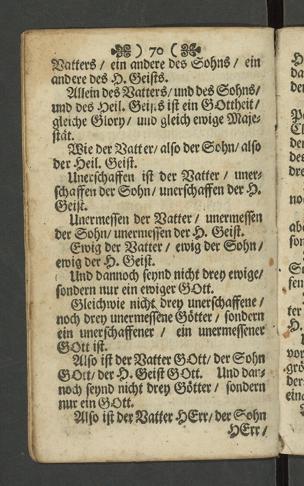 ) 70 (
Vatters / ein andere des Sohns / ein
andere des H. Geists.
Allein des Vatters / und des Sohns /
und des Heil. Geists ist ein GOttheit /
gleiche Glory / und gleich ewige Maje-
stät.
Wie der Vatter / also der Sohn / also
der Heil. Geist.
Unerschaffen ist der Vatter / uner-
schaffen der Sohn / unerschaffen der H.
Geist.
Unermessen der Vatter / unermessen
der Sohn / unermessen der H. Geist.
Ewig der Vatter / ewig der Sohn /
ewig der H. Geist.
Und dannoch seynd nicht drey ewige /
sondern nur ein ewiger GOtt.
Gleichwie nicht drey unerschaffene /
noch drey unermessene Götter / sondern
ein unerschaffener / ein unermessener
GOtt ist.
Also ist der Vatter GOtt / der Sohn
GOtt / der H. Geist GOtt. Und dan-
noch seynd nicht drey Götter / sondern
nur ein GOtt.
Also ist der Vatter HErr / der Sohn
HErr /